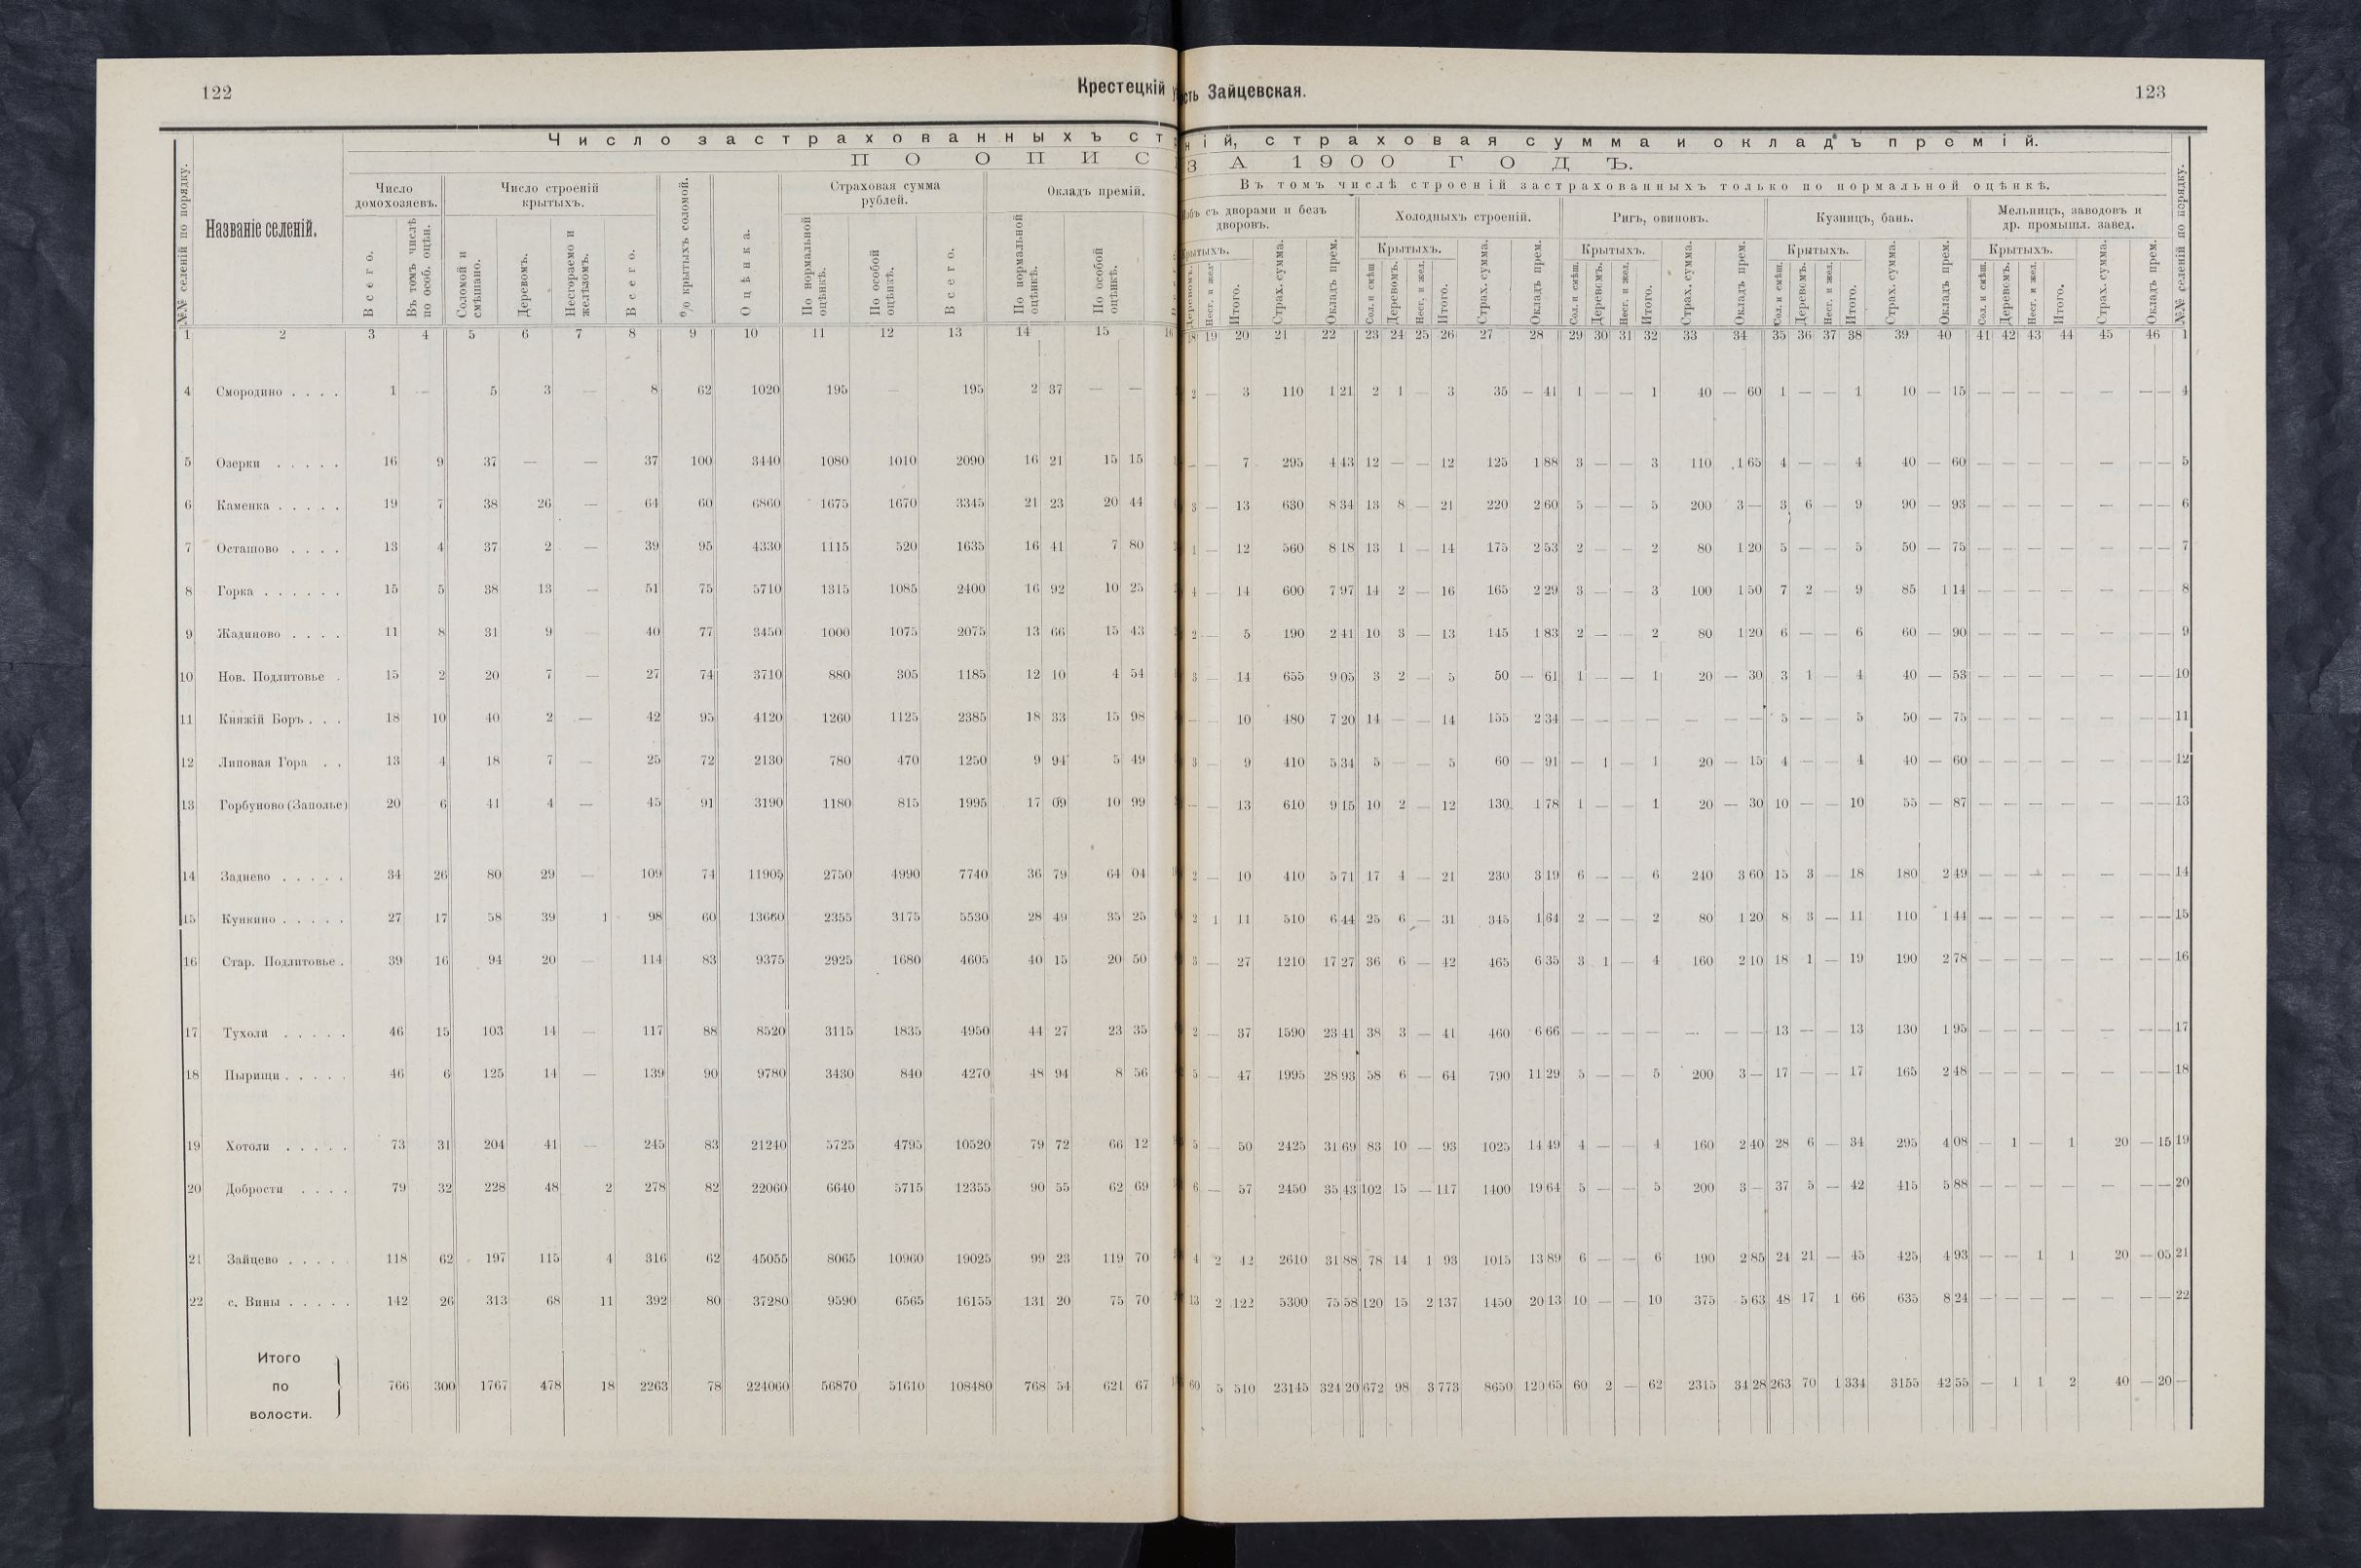 122
Крестецкій
сть Зайцевская.
123
Число застрахованныхъ ст
ній, страховая сумма и окладъ премій.
ПО ОПИС
ЗА 1900 ГОДЪ.
№№ селеній по порядку.
Названіе селеній.
Число домохозяевъ.
Всего.
Въ томъ числѣ по особ. оцѣн.
Число строеній крытыхъ.
Соломой и смѣшано.
Деревомъ.
Несгораемо и желѣзомъ.
Всего.
% крытыхъ соломой.
Оцѣнка.
Страховая сумма рублей.
По нормальной оцѣнкѣ.
По особой оцѣнкѣ.
Всего.
Окладъ премій.
По нормальной оцѣнкѣ.
По особой оцѣнкѣ.
Въ томъ числѣ строеній застрахованныхъ только по нормальной оцѣнкѣ.
съ дворами и безъ дворовъ.
Деревомъ. Несг. и жел. Итого. Страх. сумма. Окладъ прем.
Холодныхъ строеній.
Крытыхъ.
Сол. и смѣш. Деревомъ. Несг. и жел. Итого. Страх. сумма. Окладъ прем.
Ригъ, овиновъ.
Крытыхъ.
Сол. и смѣш. Деревомъ. Несг. и жел. Итого. Страх. сумма. Окладъ прем.
Кузницъ, бань.
Крытыхъ.
Сол. и смѣш. Деревомъ. Несг. и жел. Итого. Страх. сумма. Окладъ прем.
Мельницъ, заводовъ и др. промышл. завед.
Крытыхъ.
Сол. и смѣш. Деревомъ. Несг. и жел. Итого. Страх. сумма. Окладъ прем.
№№ селеній по порядку.
1 2 3 4 5 6 7 8 9 10 11 12 13 14 15 16 18 19 20 21 22 23 24 25 26 27 28 29 30 31 32 33 34 35 36 37 38 39 40 41 42 43 44 45 46 1
4 Смородино . . . . 1 — 5 3 — 8 62 1020 195 — 195 2 37 — — 2 — 3 110 1 21 2 1 — 3 35 — 41 1 — — 1 40 — 60 1 — — 1 10 — 15 — — — — — — — 4
5 Озерки . . . . . 16 9 37 — — 37 100 3440 1080 1010 2090 16 21 15 15 — — 7 295 4 43 12 — — 12 125 1 88 3 — — 3 110 1 65 4 — — 4 40 — 60 — — — — — — — 5
6 Каменка . . . . . 19 7 38 26 — 64 60 6860 1675 1670 3345 21 23 20 44 3 — 13 630 8 34 13 8 — 21 220 2 60 5 — — 5 200 3 — 3 6 — 9 90 — 93 — — — — — — — 6
7 Осташово . . . . 13 4 37 2 — 39 95 4330 1115 520 1635 16 41 7 80 1 — 12 560 8 18 13 1 — 14 175 2 53 2 — — 2 80 1 20 5 — — 5 50 — 75 — — — — — — — 7
8 Горка . . . . . . 15 5 38 13 — 51 75 5710 1315 1085 2400 16 92 10 25 4 — 14 600 7 97 14 2 — 16 165 2 29 3 — — 3 100 1 50 7 2 — 9 85 1 14 — — — — — — — 8
9 Жадиново . . . . 11 8 31 9 — 40 77 3450 1000 1075 2075 13 66 15 43 2 — 5 190 2 41 10 3 — 13 145 1 83 2 — — 2 80 1 20 6 — — 6 60 — 90 — — — — — — — 9
10 Нов. Подлитовье . 15 2 20 7 — 27 74 3710 880 305 1185 12 10 4 54 3 — 14 655 9 05 3 2 — 5 50 — 61 1 — — 1 20 — 30 3 1 — 4 40 — 53 — — — — — — — 10
11 Княжій Боръ . . . 18 10 40 2 — 42 95 4120 1260 1125 2385 18 33 15 98 — — 10 480 7 20 14 — — 14 155 2 34 — — — — — — — 5 — — 5 50 — 75 — — — — — — — 11
12 Липовая Гора . . 13 4 18 7 — 25 72 2130 780 470 1250 9 94 5 49 3 — 9 410 5 34 5 — — 5 60 — 91 — 1 — 1 20 — 15 4 — — 4 40 — 60 — — — — — — — 12
13 Горбуново (Заполье) 20 6 41 4 — 45 91 3190 1180 815 1995 17 09 10 99 — — 13 610 9 15 10 2 — 12 130 1 78 1 — — 1 20 — 30 10 — — 10 55 — 87 — — — — — — — 13
14 Заднево . . . . . 34 26 80 29 — 109 74 11905 2750 4990 7740 36 79 64 04 2 — 10 410 5 71 17 4 — 21 230 3 19 6 — — 6 240 3 60 15 3 — 18 180 2 49 — — — — — — — 14
15 Кункино . . . . . 27 17 58 39 1 98 60 13660 2355 3175 5530 28 49 35 25 2 1 11 510 6 44 25 6 — 31 345 1 64 2 — — 2 80 1 20 8 3 — 11 110 1 44 — — — — — — — 15
16 Стар. Подлитовье . 39 16 94 20 — 114 83 9375 2925 1680 4605 40 15 20 50 3 — 27 1210 17 27 36 6 — 42 465 6 35 3 1 — 4 160 2 10 18 1 — 19 190 2 78 — — — — — — — 16
17 Тухоли . . . . . 46 15 103 14 — 117 88 8520 3115 1835 4950 44 27 23 35 2 — 37 1590 23 41 38 3 — 41 460 6 66 — — — — — — — 13 — — 13 130 1 95 — — — — — — — 17
18 Пырищи . . . . . 46 6 125 14 — 139 90 9780 3430 840 4270 48 94 8 56 5 — 47 1995 28 93 58 6 — 64 790 11 29 5 — — 5 200 3 — 17 — — 17 165 2 48 — — — — — — — 18
19 Хотоли . . . . . 73 31 204 41 — 245 83 21240 5725 4795 10520 79 72 66 12 5 — 50 2425 31 69 83 10 — 93 1025 14 49 4 — — 4 160 2 40 28 6 — 34 295 4 08 — 1 — 1 20 — 15 19
20 Добрости . . . . 79 32 228 48 2 278 82 22060 6640 5715 12355 90 55 62 69 6 — 57 2450 35 43 102 15 — 117 1400 19 64 5 — — 5 200 3 — 37 5 — 42 415 5 88 — — — — — — — 20
21 Зайцево . . . . . 118 62 197 115 4 316 62 45055 8065 10960 19025 99 23 119 70 4 2 42 2610 31 88 78 14 1 93 1015 13 89 6 — — 6 190 2 85 24 21 — 45 425 4 93 — — 1 1 20 — 05 21
22 с. Вины . . . . . 142 26 313 68 11 392 80 37280 9590 6565 16155 131 20 75 70 13 2 122 5300 75 58 120 15 2 137 1450 20 13 10 — — 10 375 5 63 48 17 1 66 635 8 24 — — — — — — — 22
Итого по волости. 766 300 1767 478 18 2263 78 224060 56870 51610 108480 768 54 621 67 60 5 510 23145 324 20 672 98 3 773 8650 120 65 60 2 — 62 2315 34 28 263 70 1 334 3155 42 55 — 1 1 2 40 — 20 —